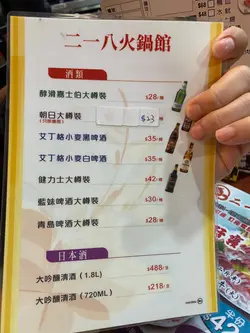 二一八火鍋館
酒類
醇滑嘉士伯大樽裝 $28/樽
朝日大樽裝 $23
艾丁格小麥黑啤酒 $35/樽
艾丁格小麥白啤酒 $35/樽
健力士大樽裝 $42/樽
藍妹啤酒大樽裝 $30/樽
青島啤酒大樽裝 $28/樽
日本酒
大吟釀清酒 (1.8L) $488/支
大吟釀清酒 (720ML) $218/支